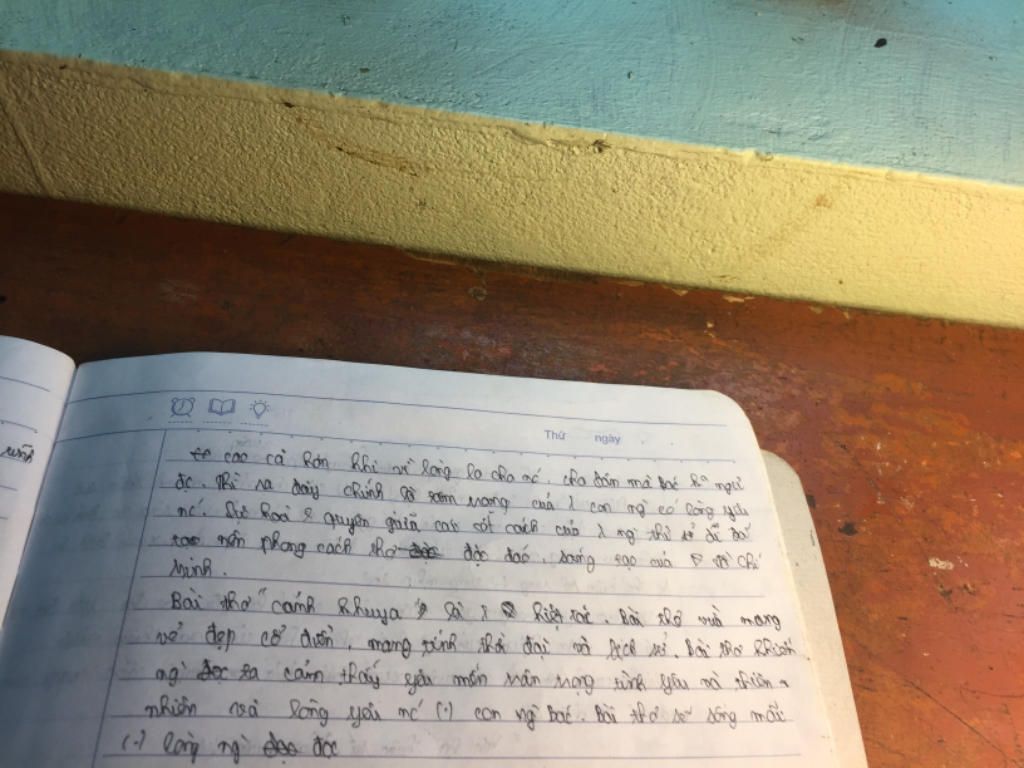 Thứ ngày
cao cả hơn khi vì lòng lo cho nc', cho dân mà Bác k° ngủ
đc. Thì ra đây chính là tâm trạng của 1 con ng` có lòng yêu
nc'. Sự hoà quyện giữa cao cốt cách của 1 ng` thi sĩ đã
tạo nên phong cách thơ độc đáo, sáng tạo của Chí
Minh.
Bài thơ "cảnh khuya là 1 kiệt tác. Bài thơ vừa mang
vẻ đẹp cổ điển, mang tính thời đại và lịch sử. Bài thơ khiến
ng` ta cảm thấy yêu mến trân trọng tình yêu và thiên
nhiên và lòng yêu nc' (.) con ng` Bác. Bài thơ sẽ sống mãi
(.) lòng ng` đọc